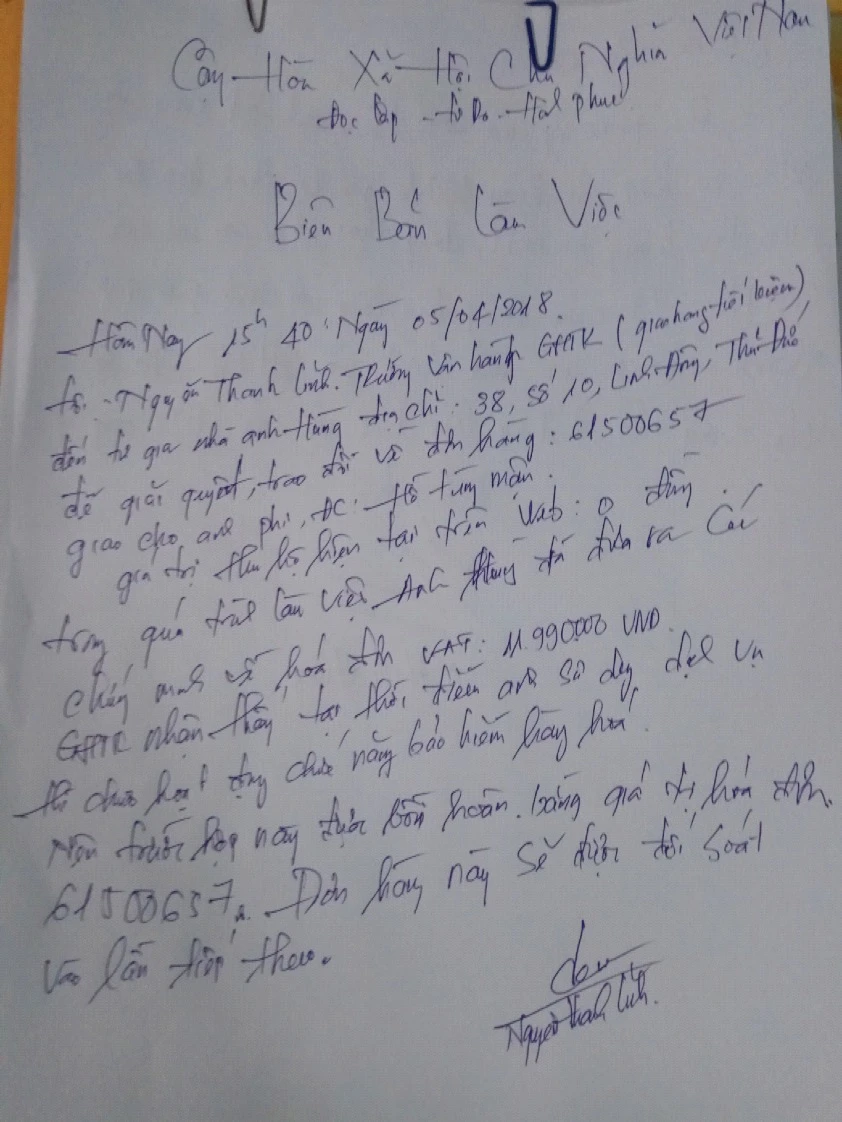 Cộng Hòa Xã Hội Chủ Nghĩa Việt Nam
Độc lập - Tự Do - Hạnh phúc
Biên Bản Làm Việc
Hôm Nay 15h 40' Ngày 05/04/2018.
tôi: Nguyễn Thanh Linh. Trưởng Vận hành GHTK (giaohangtiết kiệm)
đến tư gia nhà anh Hùng địa chỉ: 38, Số 10, Linh Đông, Thủ Đức
để giải quyết, trao đổi về đơn hàng: 61500657
giao cho anh phi, ĐC: Hồ tùng mậu.
giá trị thu hộ hiện tại trên Web: 0 đồng.
trong quá trình làm việc Anh Hùng đã đưa ra Các
chứng minh về hoá đơn VAT: 11.990.000 VND.
GHTK nhận thấy tại thời điểm anh sử dụng dịch vụ
thì chưa hoạt động chức năng bảo hiểm hàng hoá.
Nên trước hợp này được bồi hoàn bằng giá trị hoá đơn.
61500657. Đơn hàng này sẽ được đối soát
vào lần tiếp theo.
Nguyễn Thanh Linh.